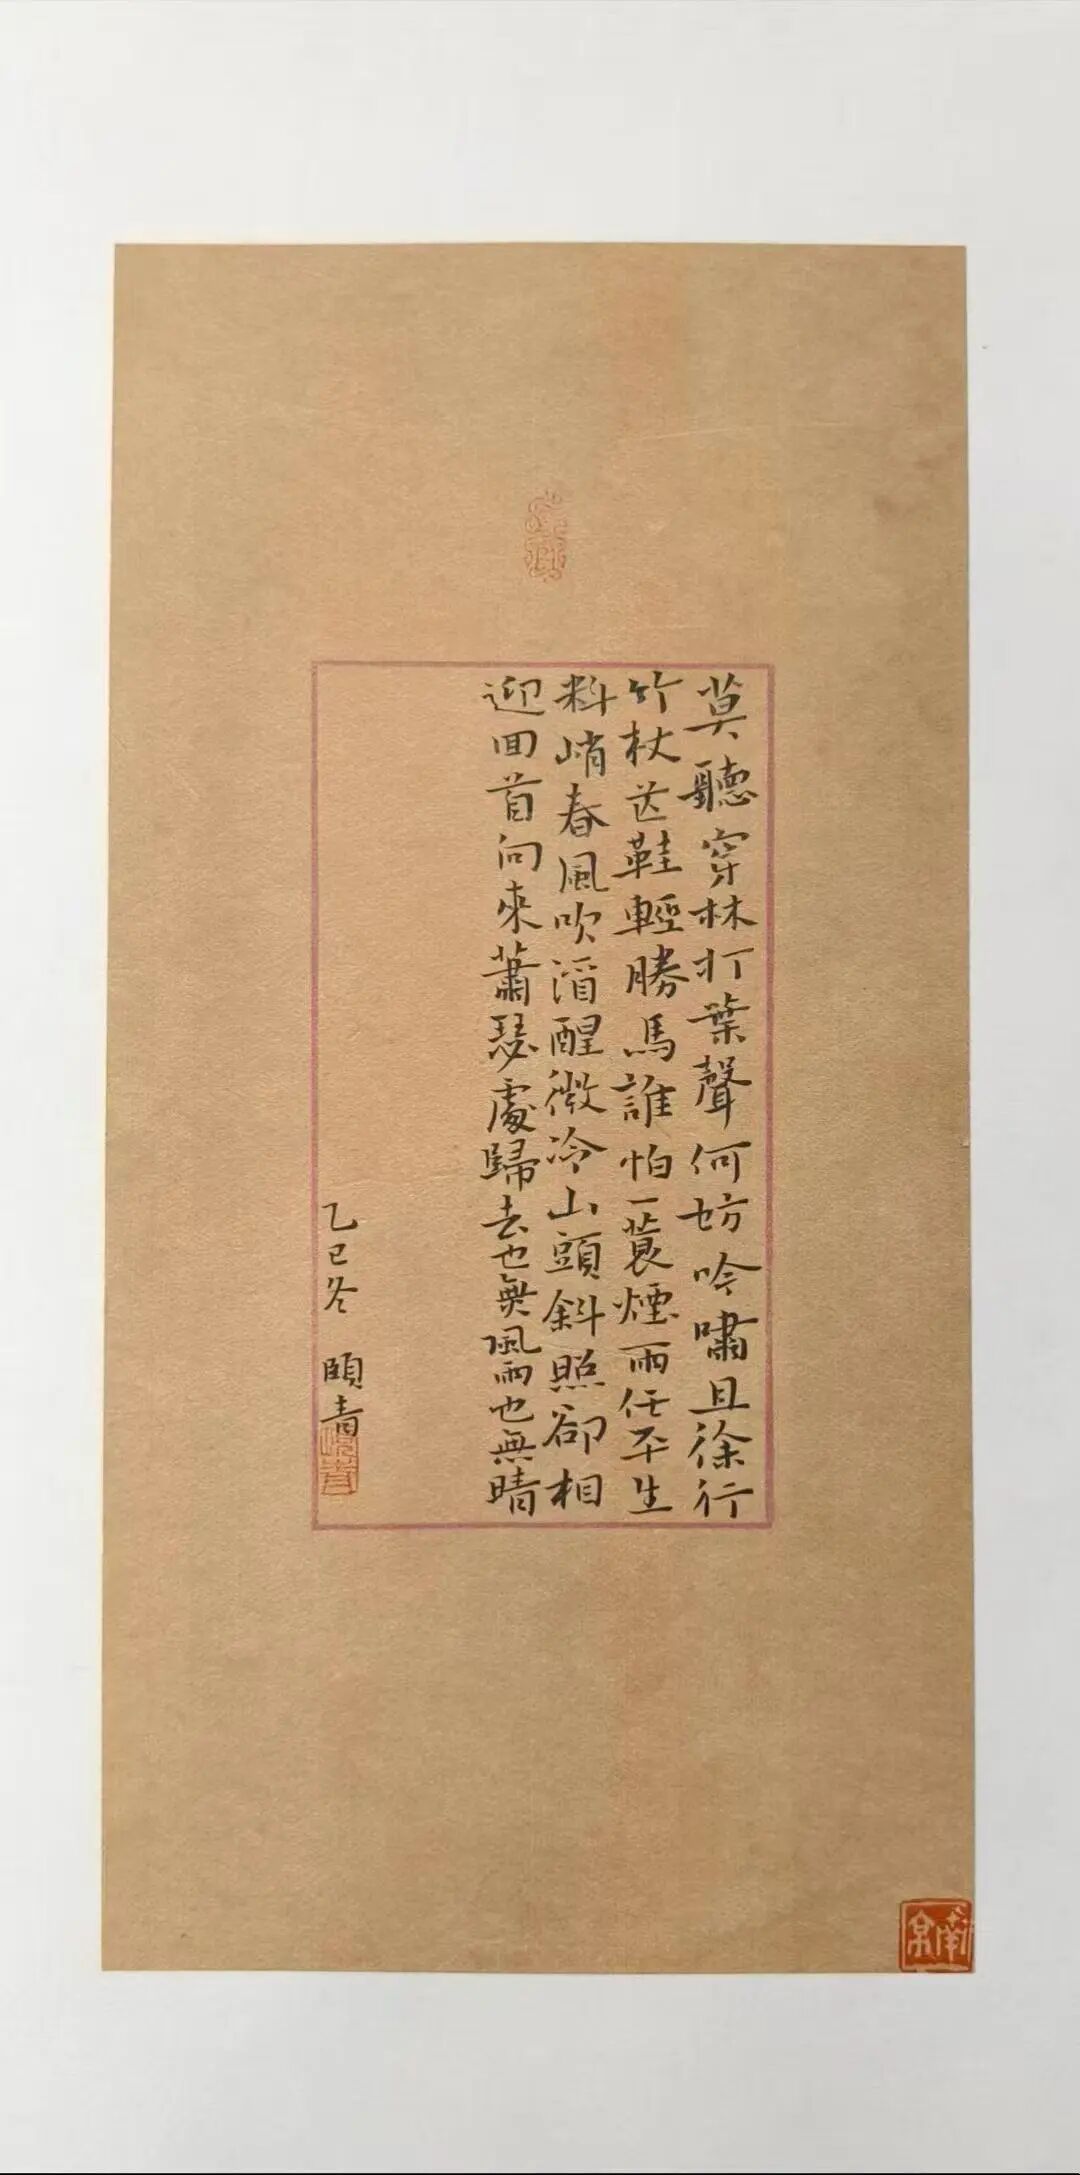 莫聽穿林打葉聲何妨吟嘯且徐行
竹杖芒鞋輕勝馬誰怕一蓑煙雨任平生
料峭春風吹酒醒微冷山頭斜照卻相
迎回首向來蕭瑟處歸去也無風雨也無晴
乙巳冬 頤青